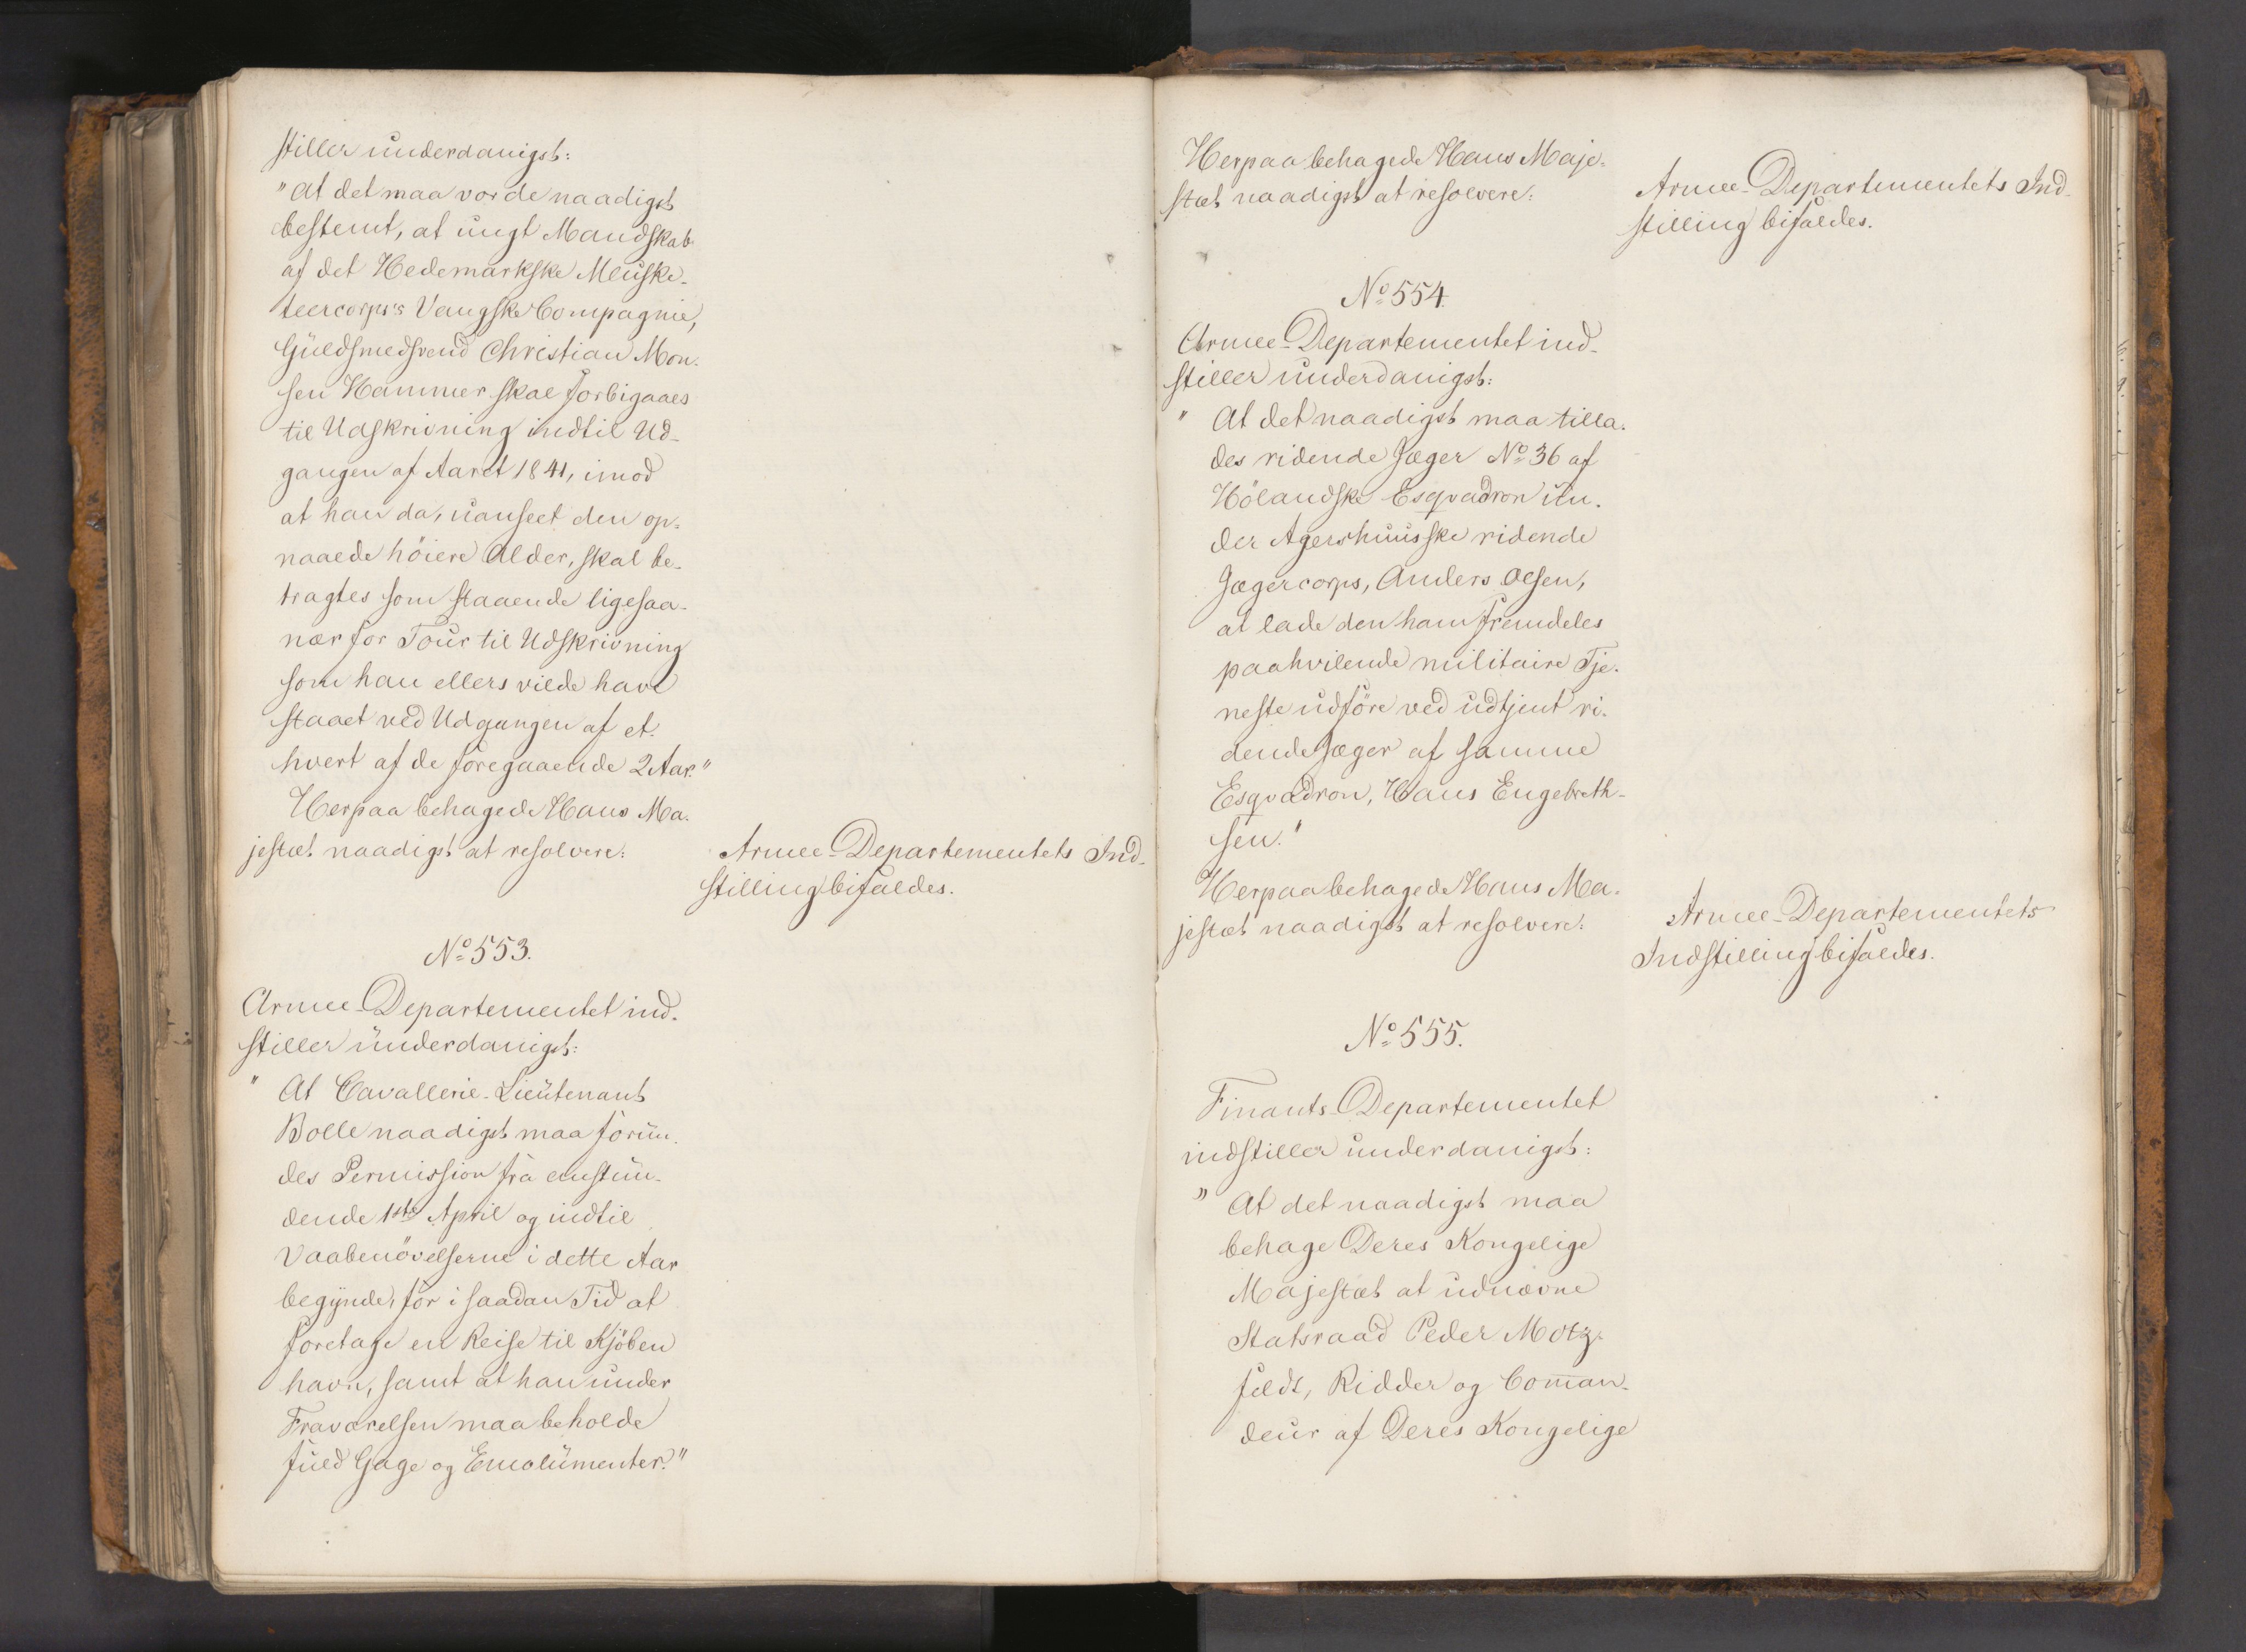 stiller underdanigst:
"At det maa vorde naadigst
bestemt, at ungt Mandskab
af det Hedemarkske Muske-
teercorps's Vangske Compagnie,
Guldsmedsvend Christian Mon-
sen Hammer skal forbigaaes
til Udskrivning indtil Ud-
gangen af Aaret 1841, imod
at han da, uanseet den op-
naaede höiere Alder, skal be-
tragtes som staaende ligesaa
nær for Tour til Udskrivning
som han ellers vilde have
staaet ved Udgangen af et-
hvert af de foregaaende 2 Aar."
Herpaa behagede Hans Ma-
jestæt naadigst at resolvere:
Armee-Departementets Ind-
stilling bifaldes.
No 553.
Armee-Departementet ind-
stiller underdanigst:
"At Cavallerie-Lieutenant
Bolle naadigst maa forun-
des Permission fra enstun-
dende 1ste April og indtil
Vaabenövelserne i dette Aar
begynde, for i saadan Tid at
foretage en Reise til Kjöben
havn, samt at han under
Fraværelsen maa beholde
fuld Gage og Emolumenter."
Herpaa behagede Hans Maje-
stæt naadigst at resolvere:
Armee-Departementets Ind-
stilling bifaldes.
No 554.
Armee-Departementet ind-
stiller underdanigst:
"At det naadigst maa tilla-
des ridende Jæger No 36 af
Hölandske Esqvadron un-
der Agershuusske ridende
Jægercorps, Anders Olsen,
at lade den ham fremdeles
paahvilende militaire Tje-
neste udföre ved udtjent ri-
dende Jæger af samme
Esqvadron, Hans Engebreth-
sen."
Herpaa behagede Hans Ma-
jestæt naadigst at resolvere:
Armee-Departementets
Indstilling bifaldes.
No 555.
Finants-Departementet
indstiller underdanigst:
"At det naadigst maa
behage Deres Kongelige
Majestæt at udnævne
Statsraad Peder Motz-
feldt, Ridder og Com̄an-
deur af Deres Kongelige